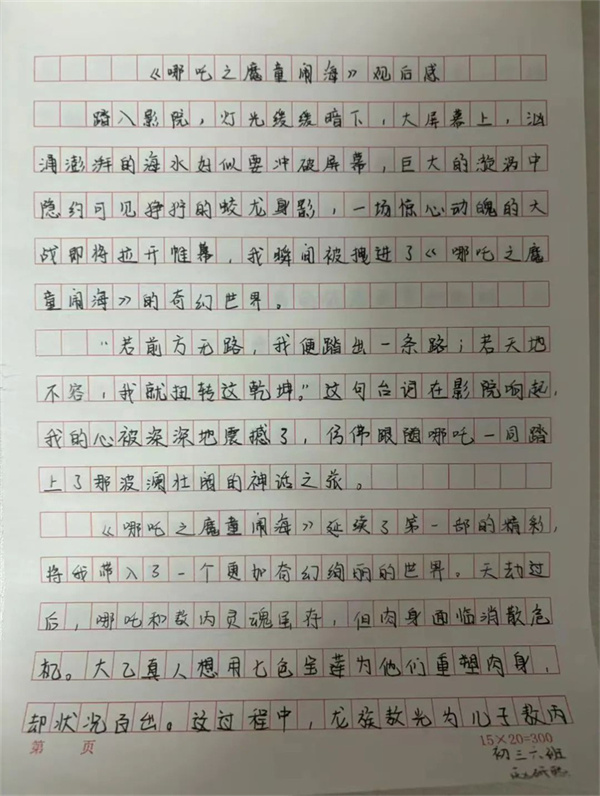 《哪吒之魔童闹海》观后感
踏入影院，灯光缓缓暗下，大屏幕上，汹
涌澎湃的海水好似要冲破屏幕，巨大的漩涡中
隐约可见狰狞的蛟龙身影，一场惊心动魄的大
战即将拉开帷幕，我瞬间被拽进了《哪吒之魔
童闹海》的奇幻世界。
“若前方无路，我便踏出一条路；若天地
不容，我就扭转这乾坤。”这句台词在影院响起，
我的心被深深地震撼了，仿佛跟随哪吒一同踏
上了那波澜壮阔的神话之旅。
《哪吒之魔童闹海》延续了第一部的精彩，
将我带入了一个更加奇幻绚丽的世界。天劫过
后，哪吒和敖丙灵魂虽存，但肉身面临消散危
机。太乙真人想用七色宝莲为他们重塑肉身，
却状况百出。这过程中，龙族敖光为儿子敖丙
第 页
15×20=300
初三六班